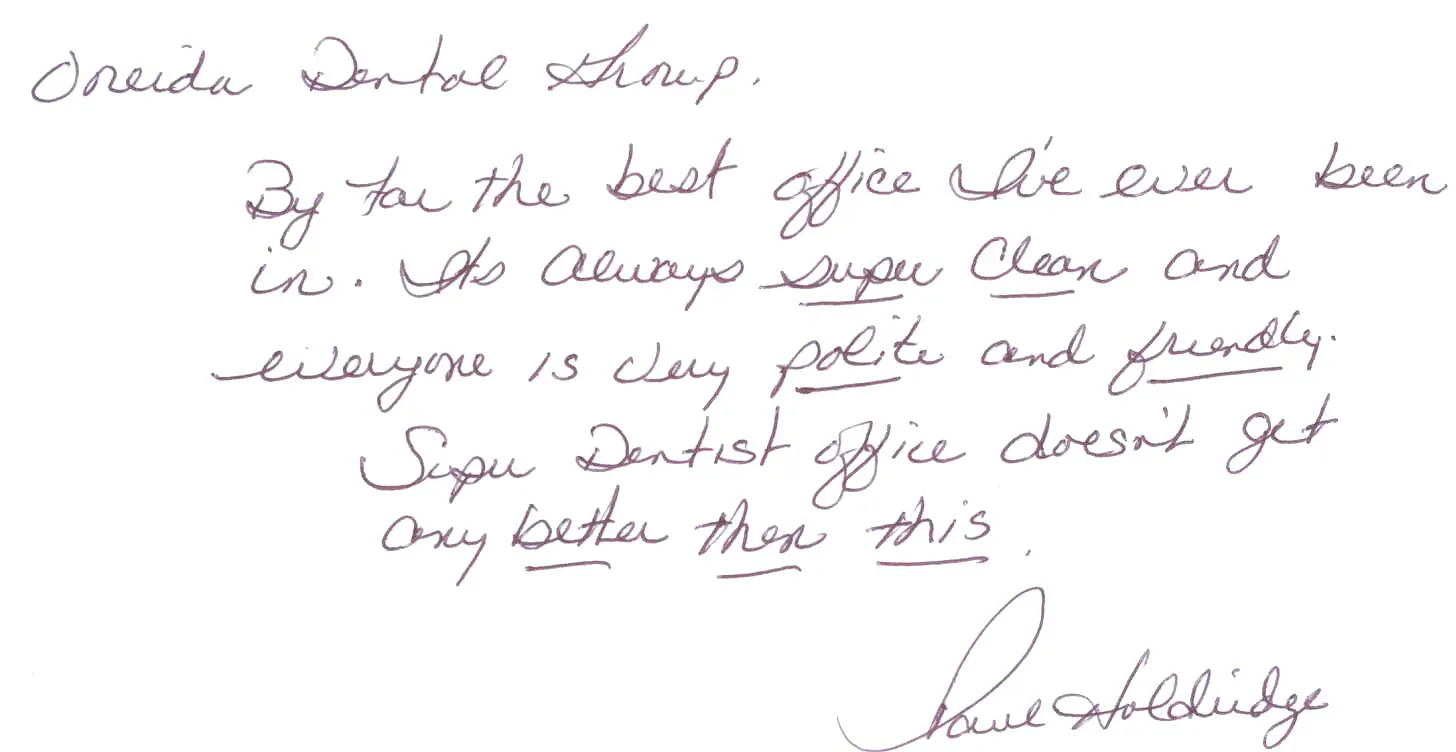 Oneida Dental Group.
By far the best office I've ever been
in. Its always super clean and
everyone is very polite and friendly.
Super Dentist office doesn't get
any better then this.
Paul Holdridge